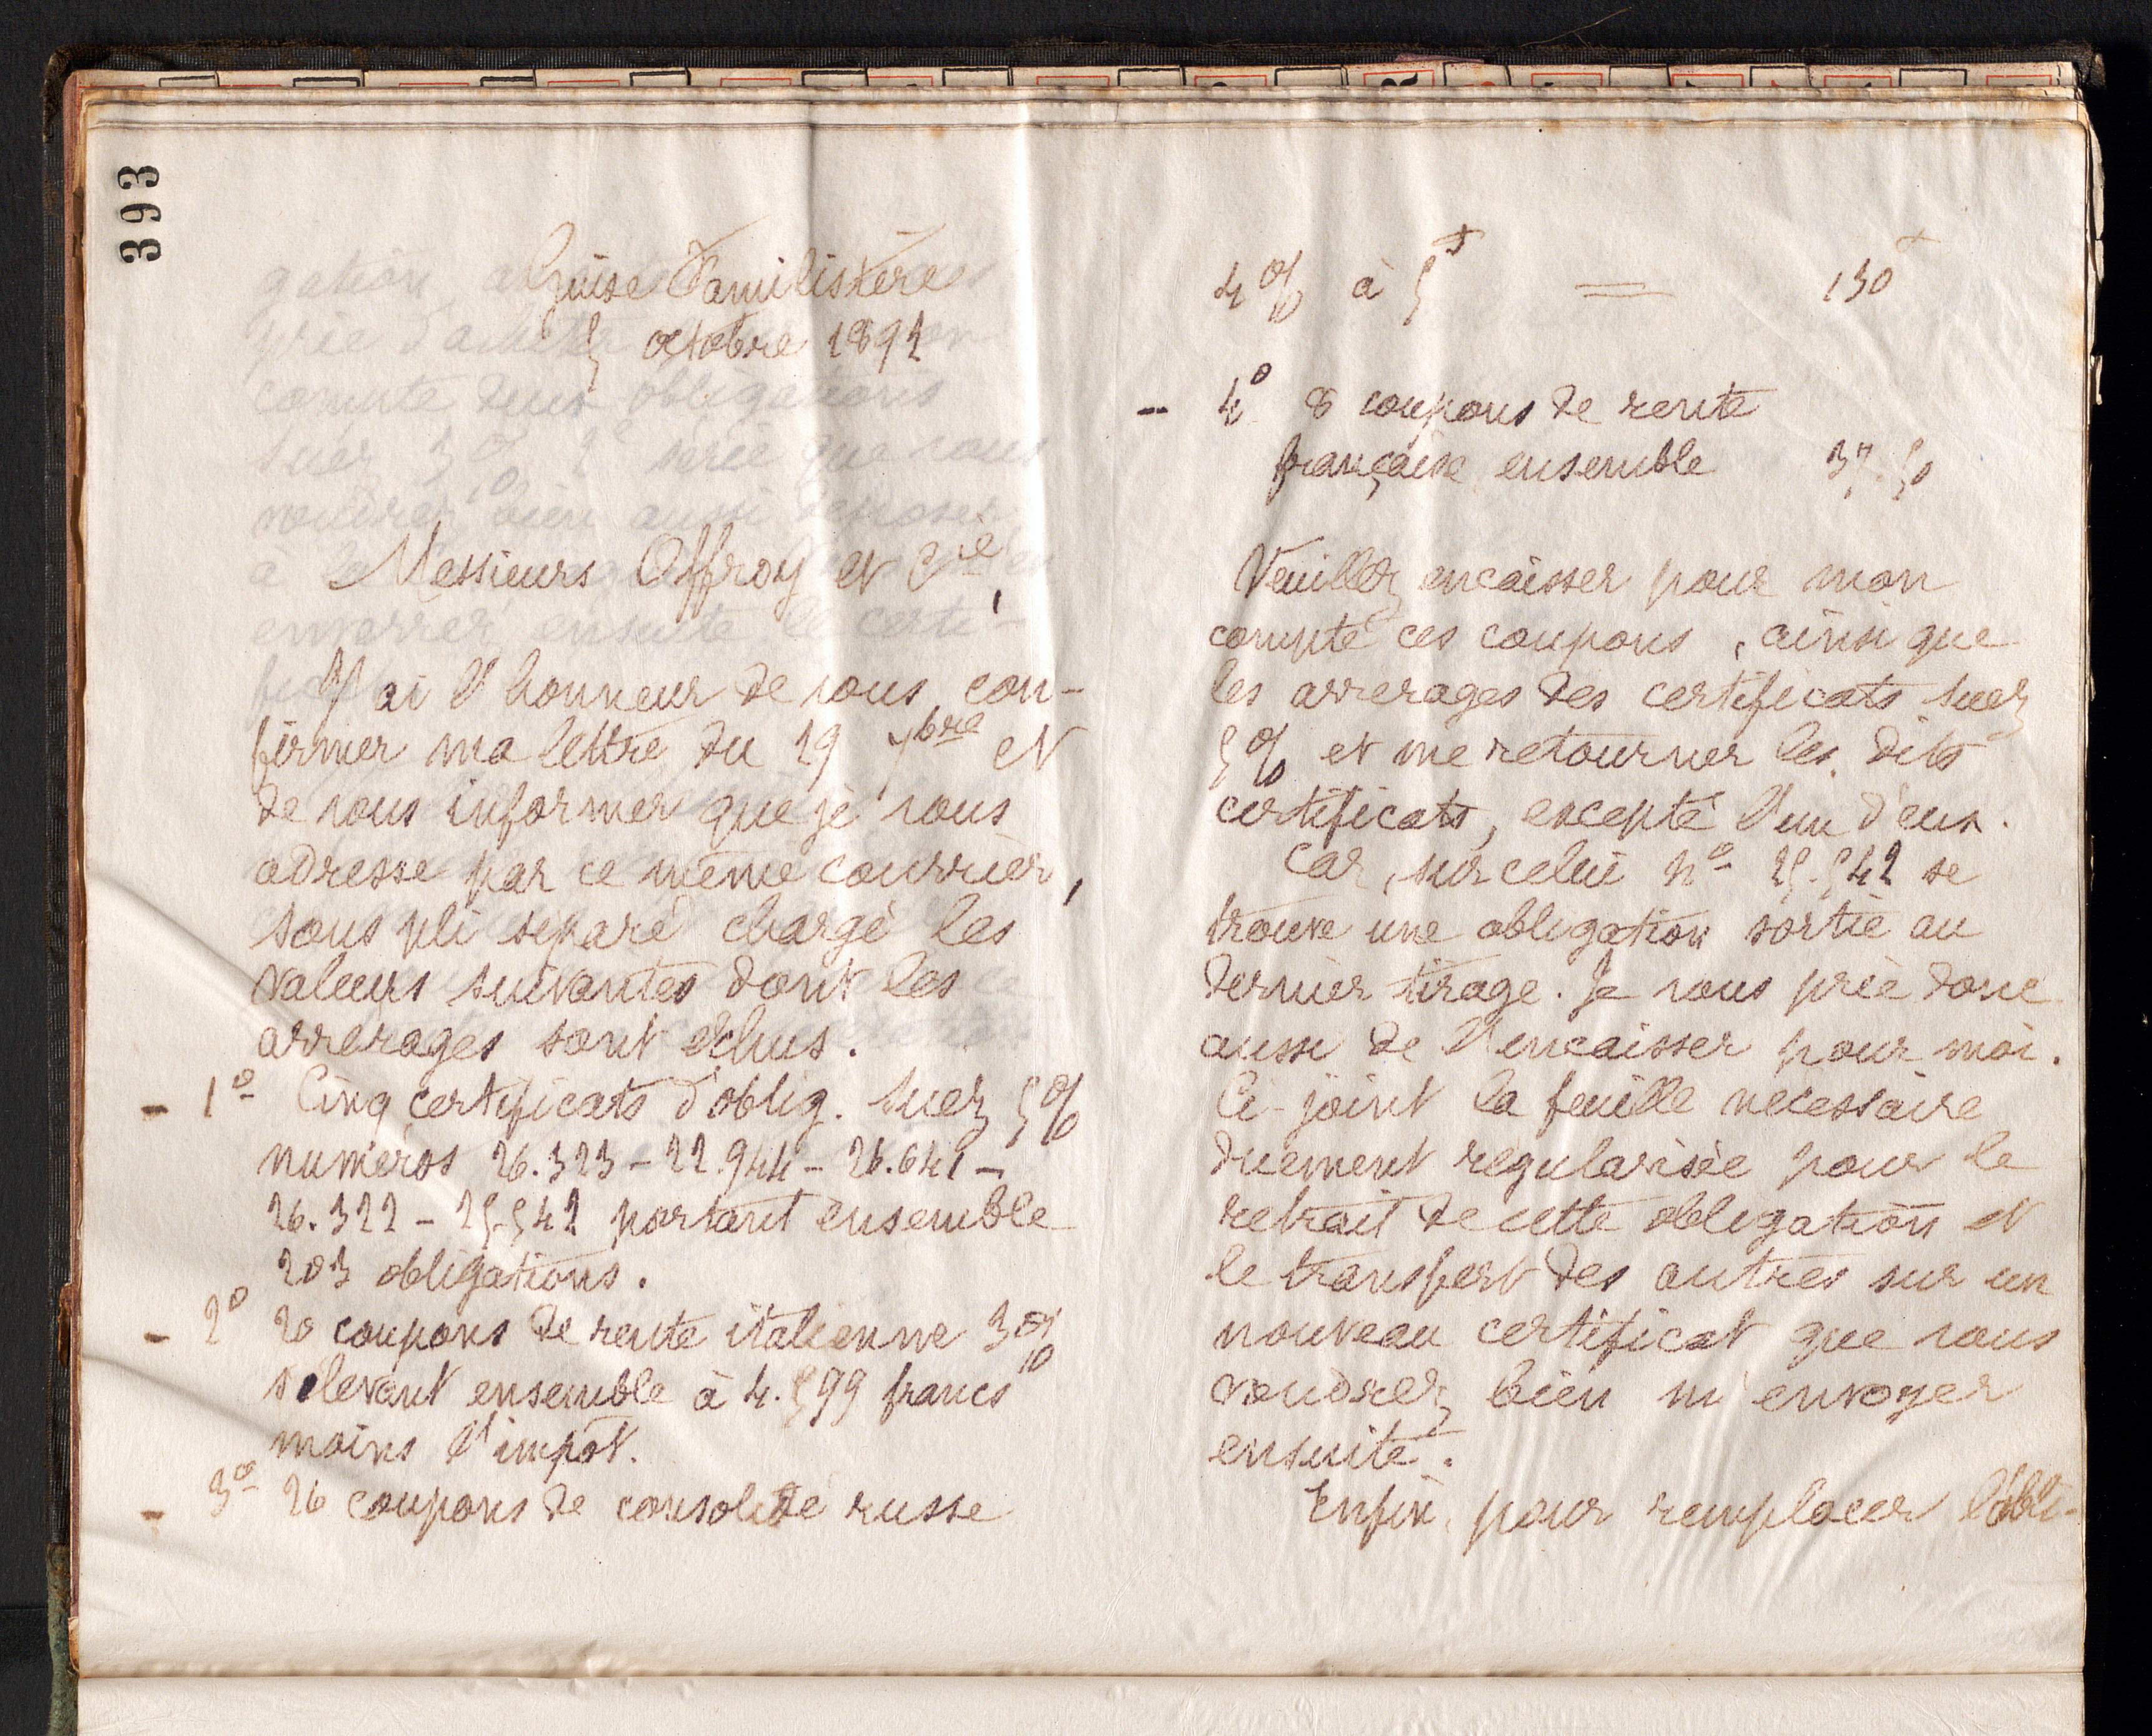 393
Guise Familistère
5 octobre 1891
Messieurs Offroy et Cie,
J'ai l'honneur de vous con-
firmer ma lettre du 19 7bre et
de vous informer que je vous
adresse par ce même courrier,
sous pli separé chargé les
valeurs suivantes dont les
arrerages sont échus.
- 1o Cinq certificats d'oblig. Suez 5%
numéros 26.323 - 22.944 - 26.641 -
26.322 - 25.542 portant ensemble
203 obligations.
- 2o 20 coupons de rente italienne 3%
s'élevant ensemble à 4.599 francs
moins l'impôt.
- 3o 26 coupons de consolidé russe
4% à 5f = 130f
- 4o 8 coupons de rente
française ensemble 37.50
Veuillez encaisser pour mon
compte ces coupons, ainsi que
les arrerages des certificats Suez
5% et me retourner les dits
certificats, excepté l'un d'eux.
Car, sur celui no 25.542 se
trouve une obligation sortie au
dernier tirage. Je vous prie donc
aussi de l'encaisser pour moi.
Ci-joint la feuille necessaire
duement regularisée pour le
retrait de cette obligation et
le transfert des autres sur un
nouveau certificat que vous
voudrez bien m'envoyer
ensuite.
Enfin, pour remplacer l'obli-